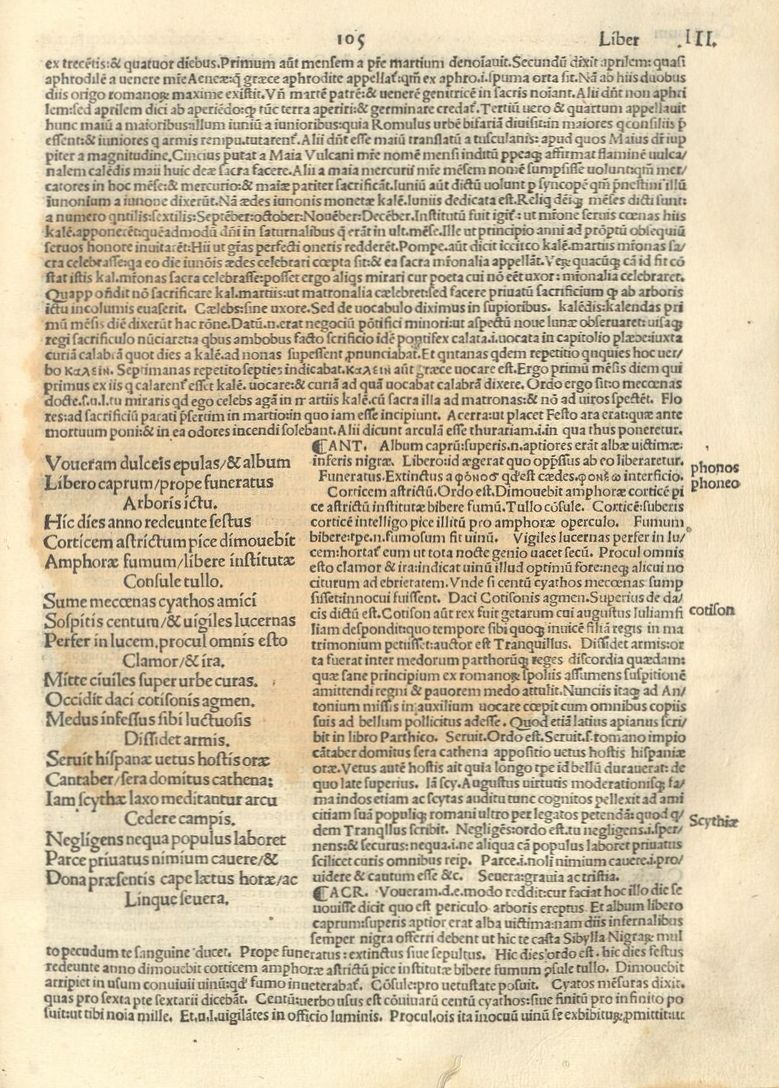 105 Liber .III.
ex trecẽtis:& quatuor diebus.Primum aũt mensem a pr̃e martium denoĩauit.Secundũ dixit aprilem: quasi
aphrodilẽ a uenere mr̃e Aeneæ:q̃ græce aphrodite appellat̃:qm̃ ex aphro.i.spuma orta sit.Nã ab hiis duobus
diis origo romanoꝝ maxime existit.Vñ martẽ patrẽ:& uenerẽ genitricẽ in sacris noĩant.Alii dñt non aphri
lem:sed aprilem dici ab aperiẽdo:ꝙ tũc terra aperiri:& germinare credat̃.Tertiũ uero & quartum appellauit
hunc maiũ a maioribus:allum iuniũ a iunioribus:quia Romulus urbẽ bifariã diuisit:in maiores q consiliis ꝑ
essent:& iuniores q armis rempu.tutarent̃.Alii dñt esse maiũ translatũ a tusculanis: apud quos Maius dr̃ iup
piter a magnitudine.Cincius putat a Maia Vulcani mr̃e nomẽ mensi inditũ ppeaq; affirmat flaminẽ uulca/
nalem calẽdis maii huic deæ sacra facere.Alii a maia mercurii mr̃e mẽsem nomẽ sumpsisse uolunt:qm̃ mer/
catores in hoc mẽse:& mercurio:& maiæ pariter sacrificãt.Iuniũ aũt dictũ uolunt ꝑ syncopẽ qm̃ pnestini illũ
iunonium a iunone dixerũt.Nã ædes iunonis monetæ kalẽ.Iuniis dedicata est.Reliq̃ deiq; mẽses dicti sunt:
a numero qntilis:sextilis:Septẽber:october:Nouẽber:Decẽber.Institutũ fuit igit̃: ut mr̃one seruis cœnas hiis
kalẽ.apponerẽt:quẽadmodũ dñi in saturnalibus q̃ erãt in ult.mẽse.Ille ut principio anni ad prõptũ obsequiũ
seruos honore inuitarẽt:Hii ut gr̃as perfecti oneris redderẽt.Pompe.aũt dicit iccirco kalẽ.martiis mr̃onas sa/
cra celebrasse:qa eo die iunõis ædes celebrari cœpta sit:& ea sacra mr̃onalia appellãt.
stat istis kal.mr̃onas sacra celebrasse:posset ergo aliqs mirari cur poeta cui nõ eẽt uxor: mr̃onalia celebraret.
Quapp oñdit nõ sacrificare kal.martiis:ut matronalia cælebret:sed facere priuatũ sacrificium ꝙ ab arboris
ictu incolumis euaserit. Cælebs:sine uxore. Sed de uocabulo diximus in suꝑioribus. kalẽdis:kalendas pri
mũ mẽsis diẽ dixerũt hac rõne.Datũ.n.erat negociũ põtifici minori:ut aspectũ noue lunæ obseruaret: uisaq;
regi sacrificulo nũciaret:a qbus ambobus facto scrificio idẽ pontifex calata.i.uocata in capitolio plæbe:iuxta
curiã calabrã quot dies a kalẽ.ad nonas supessent,pnunciabat. Et qntanas qdem repetitio qnquies hoc uer/
bo ΚΑΛΕΙΝ. Septimanas repetito septies indicabat.ΚΑΛΕΙΝ aũt græce uocare est.Ergo primũ mẽsis diem qui
primus ex iis q calarent̃ esset kalẽ. uocare:& curiã ad quã uocabat calabrã dixere. Ordo ergo sit:o mecœnas
docte.s.u.l.tu miraris qd ego celebs agã in mr̃ artiis kalẽ.cũ sacra illa ad matronas:& nõ ad uiros spectẽt. Flo
res:ad sacrificiũ parati ꝑsertim in martio:in quo iam esse incipiunt. Acerra:ut placet Festo ara erat:quæ ante
mortuum poni:& in ea odores incendi solebant.Alii dicunt arculã esse thurariam.i.in qua thus poneretur.
Voueram dulceis epulas/& album
Libero caprum/prope funeratus
Arboris ictu.
Hic dies anno redeunte festus
Corticem astrictum pice dimouebit
Amphoræ fumum/libere institutæ
Consule tullo.
Sume mecœnas cyathos amici
Sospitis centum/& uigiles lucernas
Perfer in lucem,procul omnis esto
Clamor/& ira.
Mitte ciuiles super urbe curas.
Occidit daci cotisonis agmen.
Medus infestus sibi luctuosis
Dissidet armis.
Seruit hispanæ uetus hostis oræ
Cantaber/sera domitus cathena:
Iam scythæ laxo meditantur arcu
Cedere campis.
Negligens nequa populus laboret
Parce priuatus nimium cauere/&
Dona præsentis cape lætus horæ/ac
Linque seuera.
⁋ANT. Album caprũ:superis.n.aptiores erãt albæ uictimæ:
inferis nigræ. Libero:id ægerat quo opprssus ab eo liberaretur.
Funeratus.Extinctus a φόνοσ qd est cædes.φονέω interficio.
Corticem astrictũ.Ordo est.Dimouebit amphoræ corticẽ pi
ce astrictũ institutæ bibere fumũ.Tullo cõsule. Corticẽ:suberis
corticẽ intelligo pice illitũ pro amphoræ operculo. Fumum
bibere:tpe.n.fumosum fit uinũ. Vigiles lucernas perfer in lu/
cem:hortat̃ eum ut tota nocte genio uacet secũ. Procul omnis
esto clamor & ira:indicat uinũ illud optimũ fore:neq; alicui no
citurum ad ebrietatem. Vnde si centũ cyathos mecœnas sump
sisset:innocui fuissent. Daci Cotisonis agmen.Superius de da/
cis dictũ est.Cotison aũt rex fuit getarum cui augustus Iuliam fi
liam despondit:quo tempore sibi quoq; inuicẽ filiã regis in ma
trimonium petisset:auctor est Tranquillus. Dissidet armis:or
ta fuerat inter medorum patthorũq; reges discordia quædam:
quæ sane principium ex romanoꝝ spoliis assumens suspitionẽ
amittendi regni & pauorem medo attulit.Nunciis itaq; ad An/
tonium missis in auxilium uocare cœpit cum omnibus copiis
suis ad bellum pollicitus adesse. Quod etiã latius apianus scri/
bit in libro Parthico. Seruit.Ordo est.Seruit.s.romano impio
cãtaber domitus sera cathena appositio uetus hostis hispaniæ
oræ.Vetus autẽ hostis ait quia longo tpe id bellũ durauerat: de
quo late superius. Iã scy.Augustus uirtutis moderationisq; fa/
ma indos etiam ac scytas auditu tunc cognitos pellexit ad ami
citiam suã populiq; romani ultro per legatos petendã: quod q/
dem Tranqllus scribit. Negligẽs:ordo est.tu negligens.i.sper/
nens:& securus:nequa.i.ne aliqua cã populus laboret priuatus
scilicet curis omnibus reip. Parce.i.noli nimium cauere.i.pro/
uidere & cautum esse &c. Seuera:grauia ac tristia.
⁋ACR. Voueram.d.e.modo reddit:cur faciat hoc illo die se
uouisse dicit quo est periculo arboris ereptus. Et album libero
caprum:superis aptior erat alba uictima:nam diis infernalibus
semper nigra offerri debent ut hic te casta Sibylla Nigraꝝ mul
to pecudum te sanguine ducet. Prope funeratus : extinctus siue sepultus. Hic dies ordo est. hic dies festus
redeunte anno dimouebit corticem amphoræ astrictũ pice institutæ bibere fumum ꝓsule tullo. Dimouebit
arripiet in usum conuiuii uinũ:qd fumo inueterabat̃. Cõsule:pro uetustate posuit. Cyatos mẽsuras dixit.
quas pro sexta pte sextarii dicebãt. Centũ:uerbo usus est cõuiuarũ centũ cyathos:siue finitũ pro infinito po
suit:ut tibi noĩa mille. Et.u.l.uigilãtes in officio luminis. Procul.oĩs ita ĩnocuũ uinũ se exhibitur̃,pmittit:ut
phonos
phoneo
cotison
Scythiæ